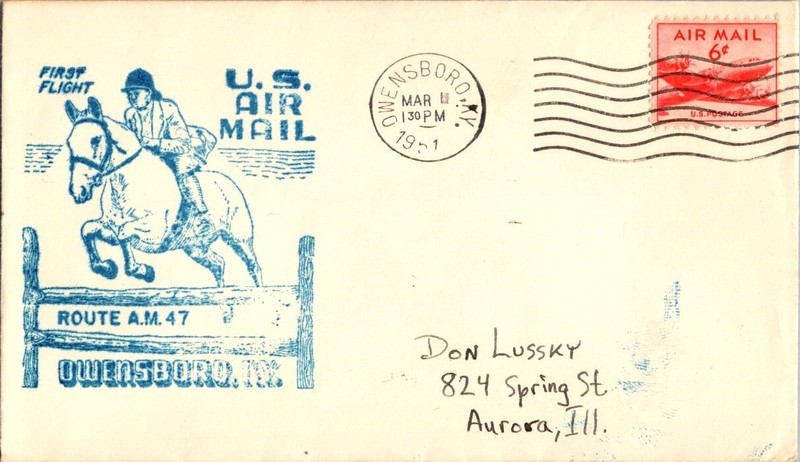 FIRST
FLIGHT
U.S.
AIR
MAIL
ROUTE A.M. 47
OWENSBORO, KY.
OWENSBORO, KY.
MAR
1 30 PM
1951
AIR MAIL
6¢
U.S. POSTAGE
Don Lussky
824 Spring St
Aurora, Ill.